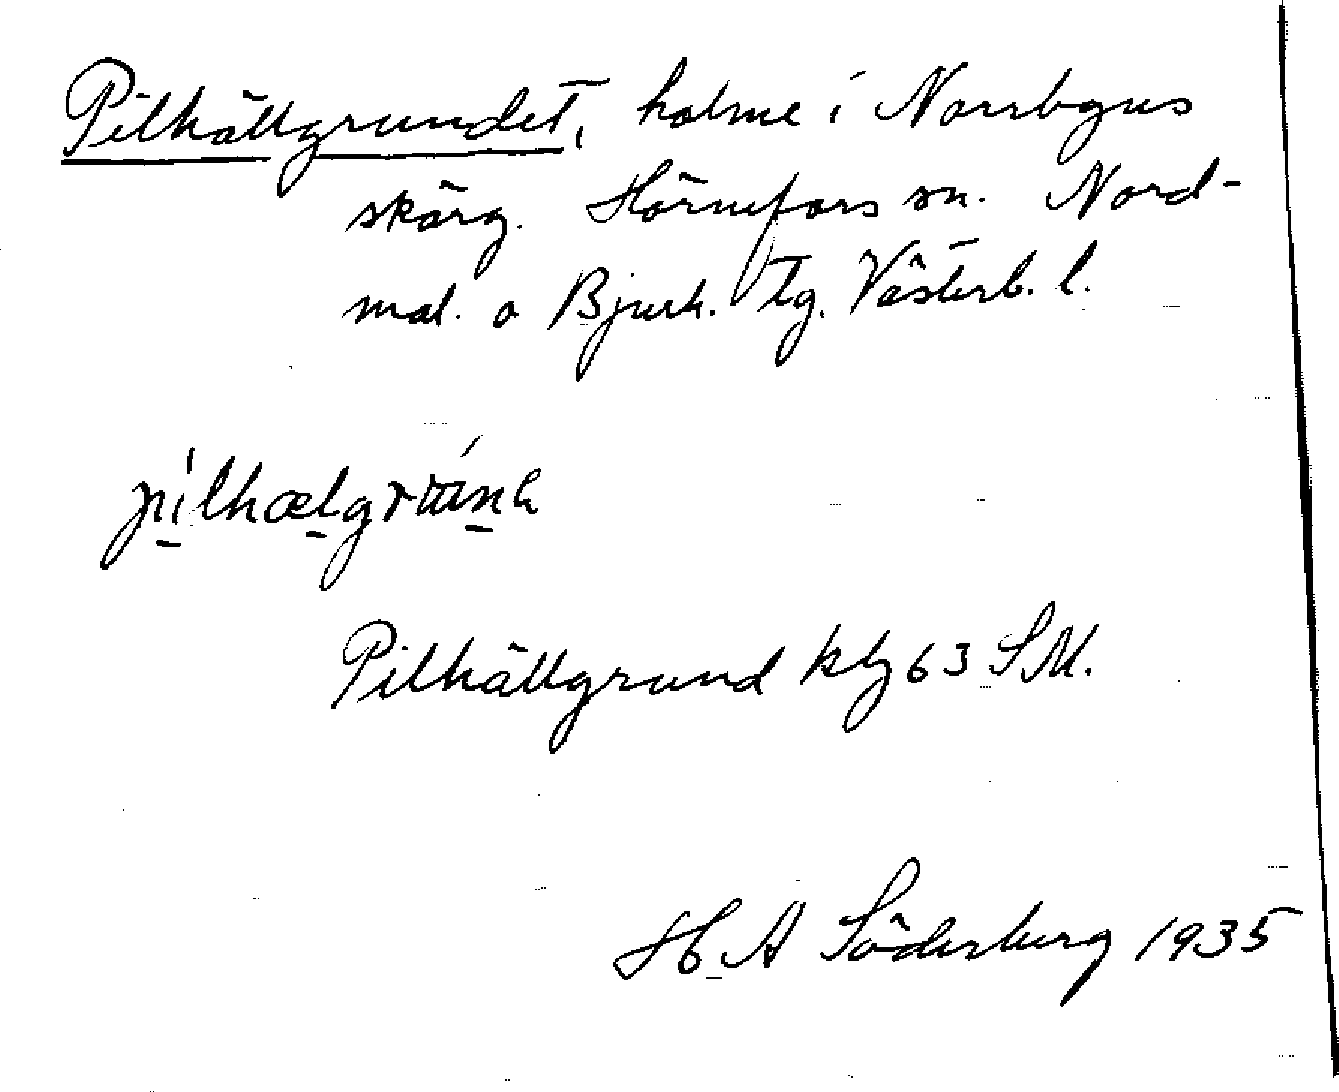 Pilhällgrundet, holme i Norrbgns
skärg. Hörnefors sn. Nord-
mal. o Bjurh. tg. Västerb. l.
pilhælgrɯnḁ
Pilhällgrund kbl 63 SM.
H A Söderberg 1935